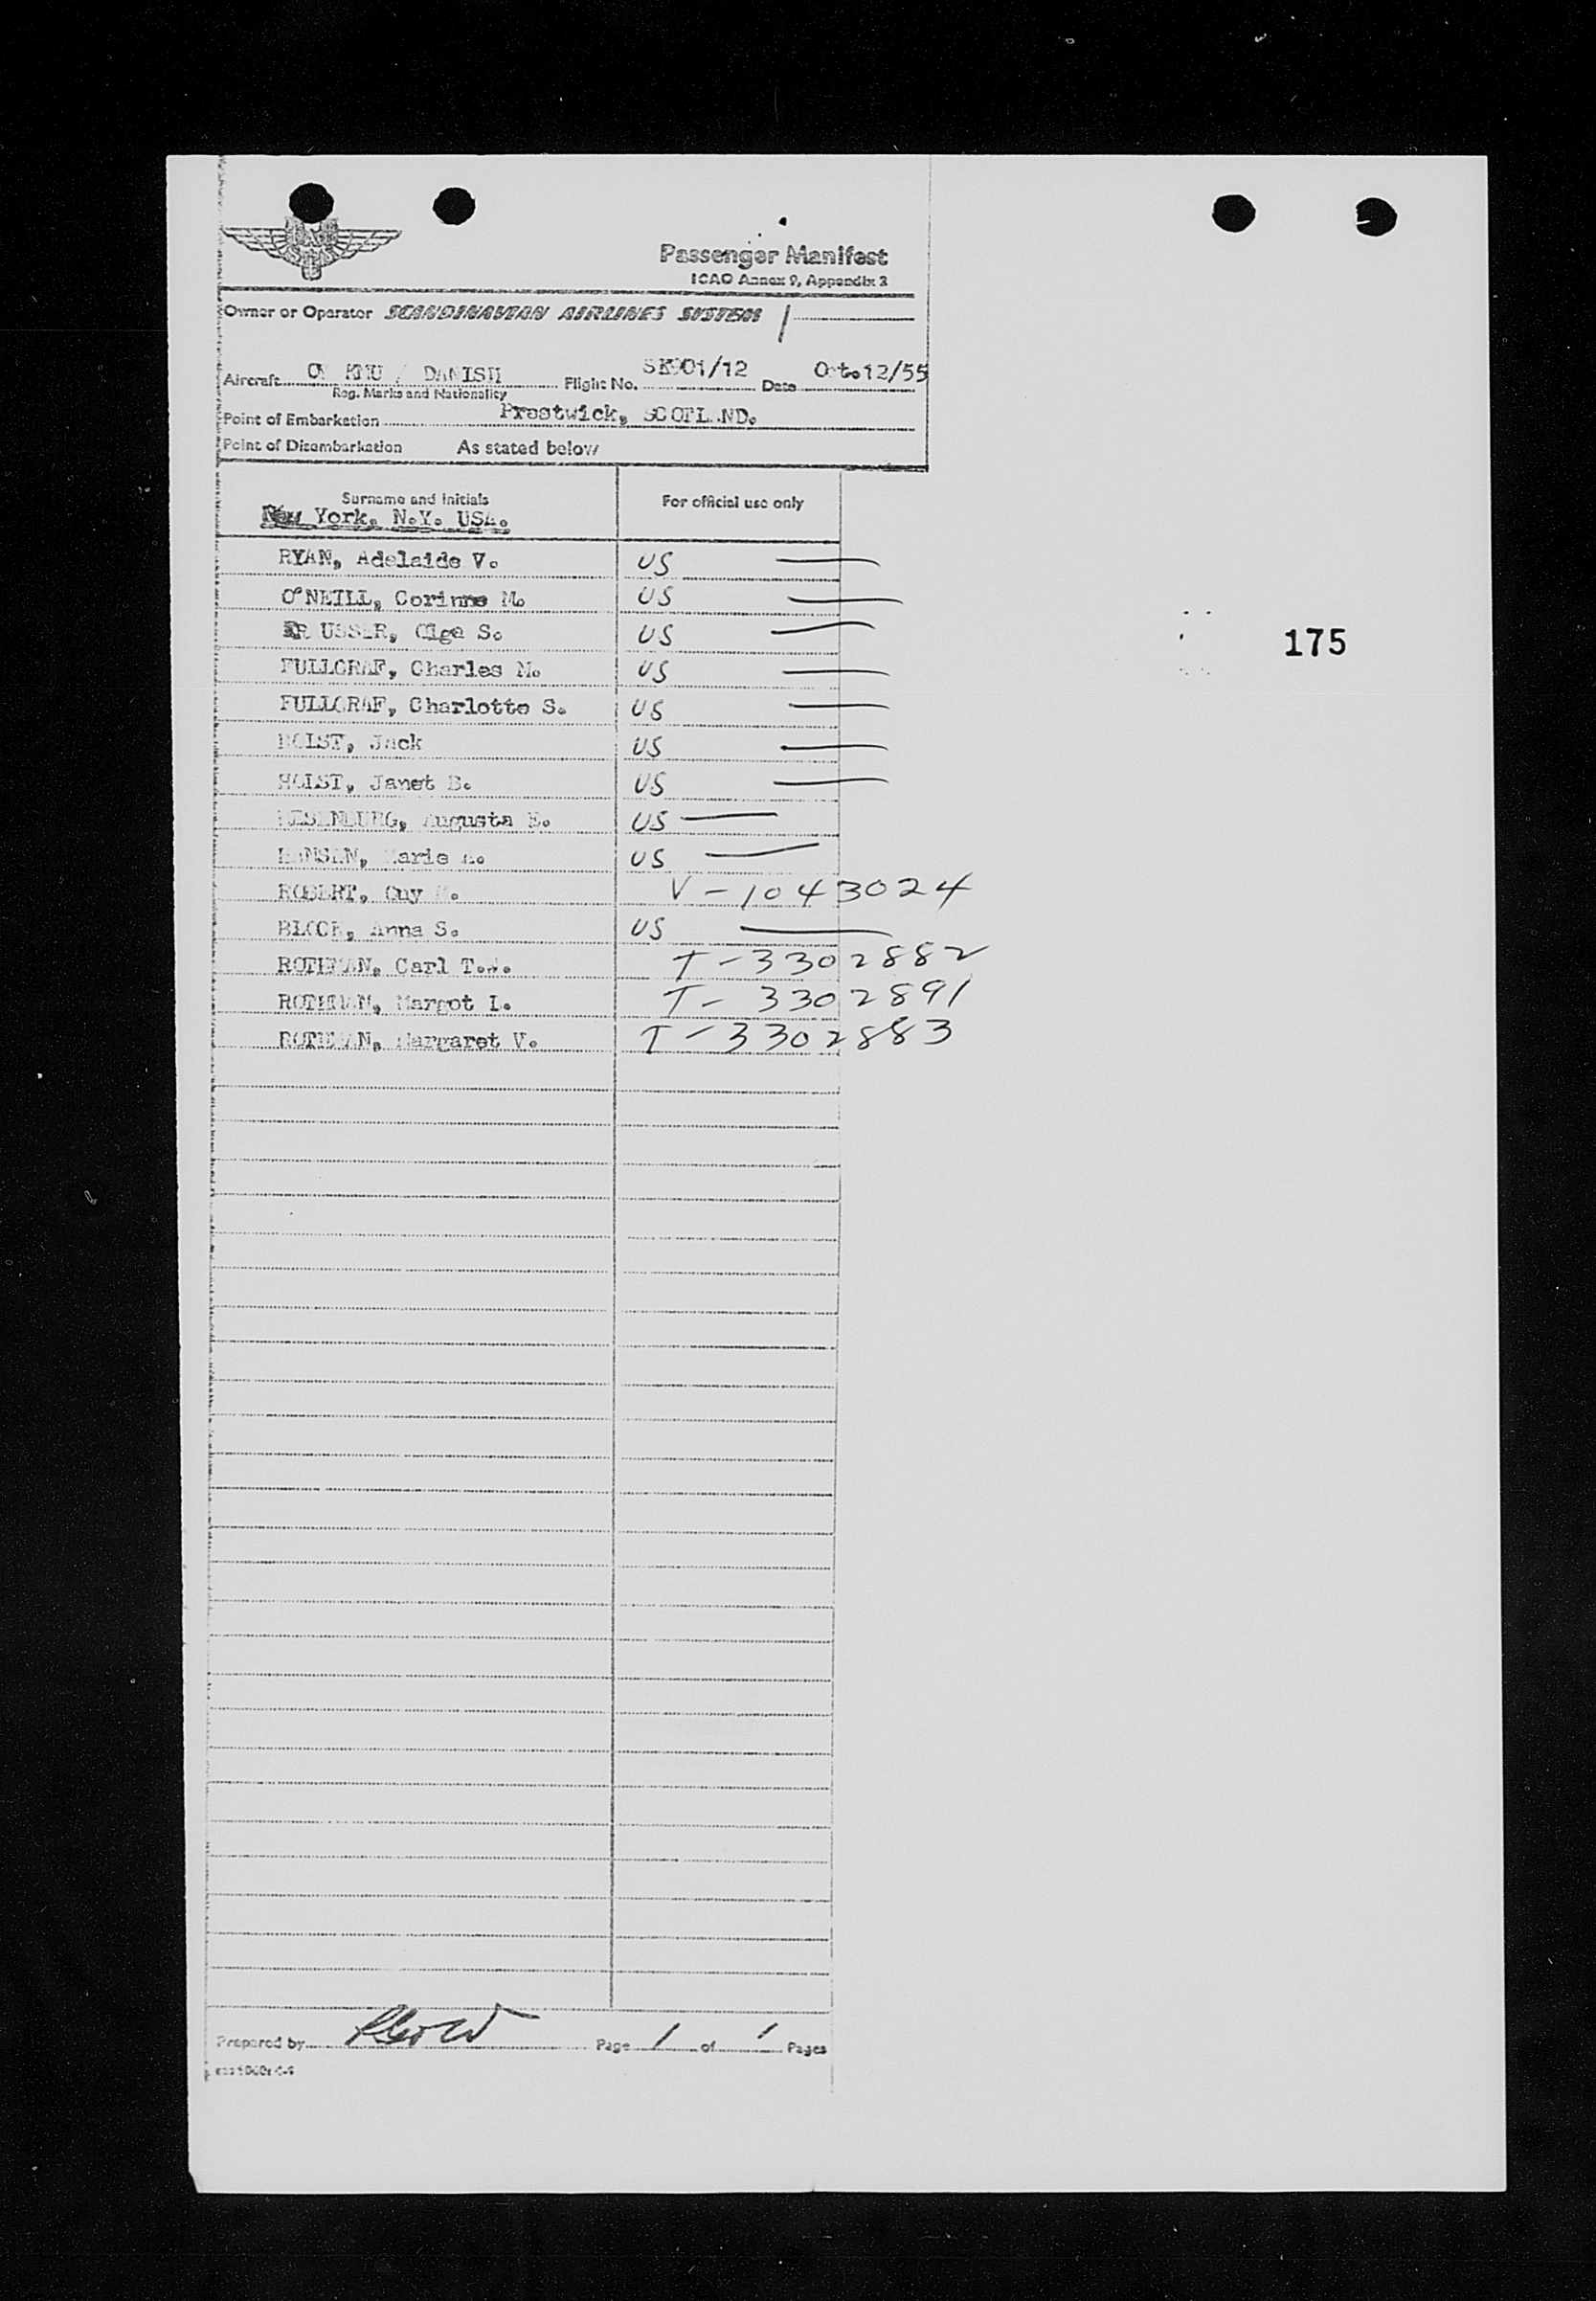 Passenger Manifest
ICAO Annex 9, Appendix 2
Owner or Operator SCANDINAVIAN AIRLINES SYSTEM
Aircraft OY KMU / DANISH Flight No. SK901/12 Date Oct.12/55
Reg. Marks and Nationality
Point of Embarkation Prestwick, SCOTLAND.
Point of Disembarkation As stated below
Surname and Initials For official use only
New York, N.Y. USA.
RYAN, Adelaide V. US
O'NEILL, Corinne M. US
Olga S. US
175
FULLGRAF, Charles M. US
FULLGRAF, Charlotte S. US
HOLST, Jack US
HOLST, Janet B. US
Augusta E. US
HANSEN, Marie US
ROBERT, Guy V-1043024
BLOCH, Anna S. US
ROTHMAN, Carl T-3302882
ROTHMAN, Margot I. T-3302891
ROTHMAN, Margaret V. T-3302883
Prepared by Page 1 of 1 Pages